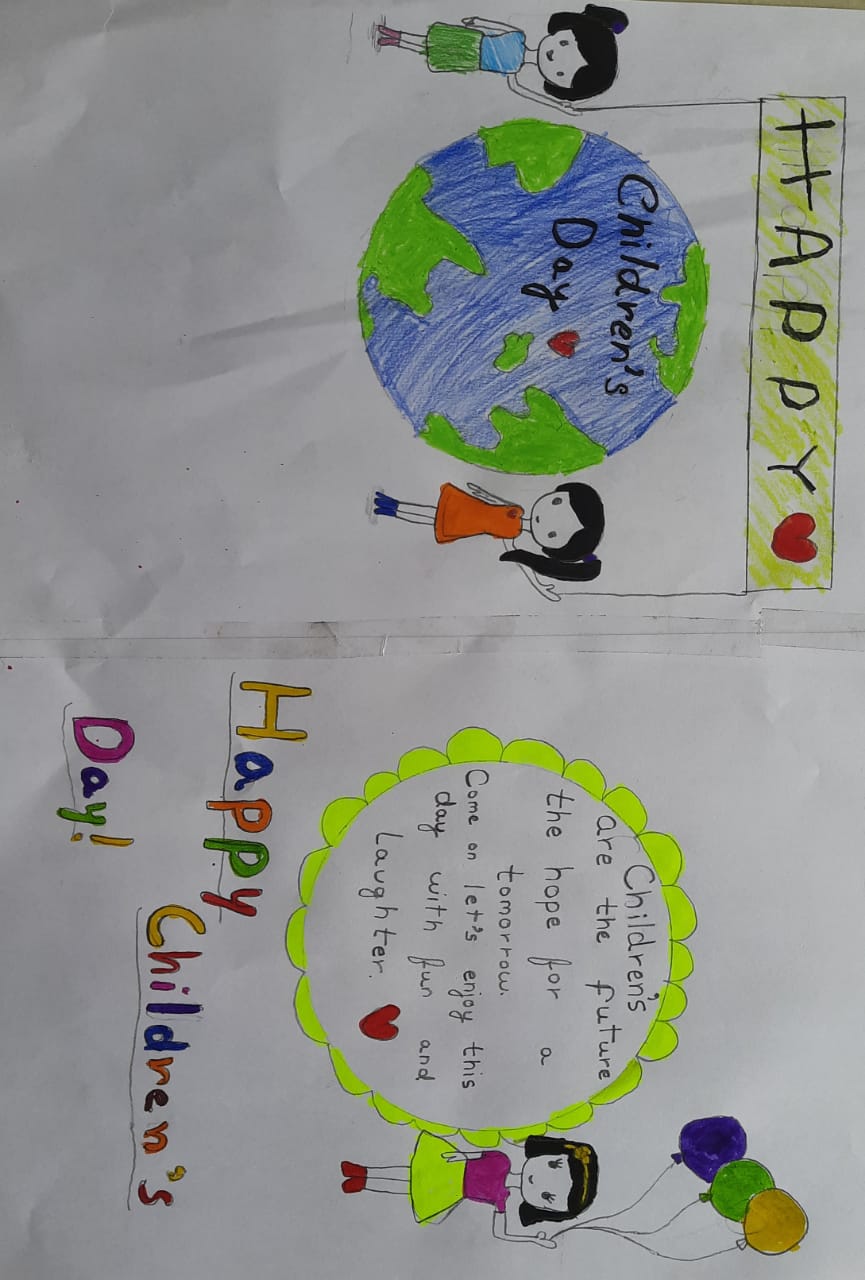 HAPPY
Children's
Day
Children's
are the future
the hope for a
tomorrow.
Come on let's enjoy this
day with fun and
Laughter.
Happy
Children's
Day!